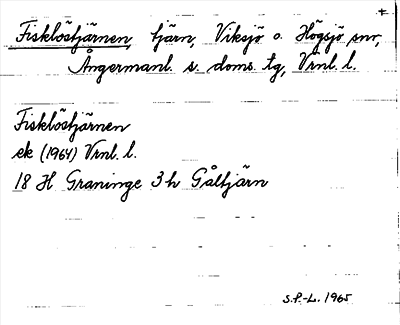 +
Fisklöstjärnen, tjärn, Viksjö o. Högsjö snr,
Ångermanl. s. doms. tg, Vrnl. l.
Fisklöstjärnen
ek (1964) Vrnl. l.
18 H Graninge 3h Gåltjärn
S.P.-L. 1965